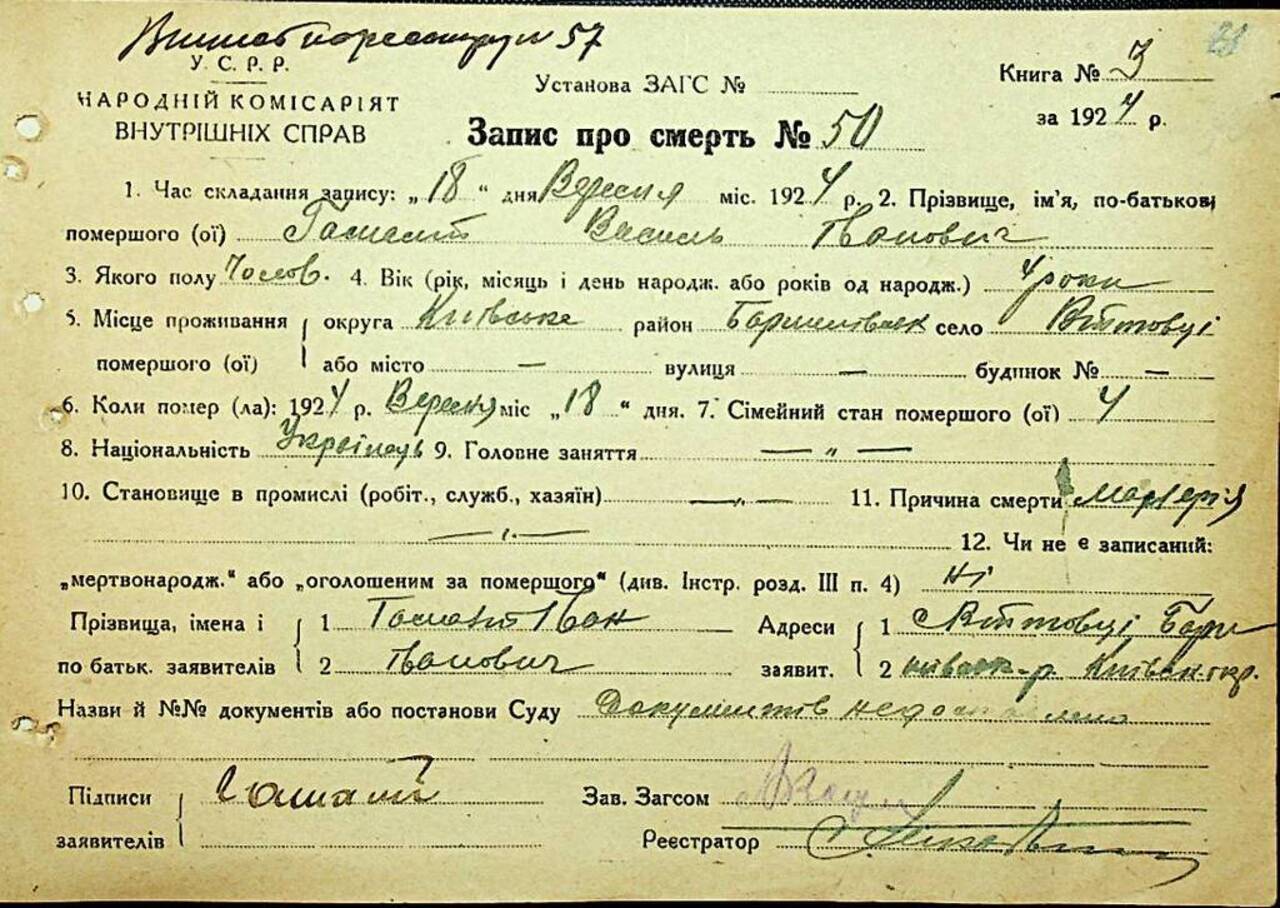 57
У. С. Р. Р.
НАРОДНІЙ КОМІСАРІЯТ
ВНУТРІШНІХ СПРАВ
Установа ЗАГС №
Книга № 3
за 1924 р.
Запис про смерть № 50
1. Час складання запису: „18“ дня Вересня міс. 1924 р. 2. Прізвище, ім'я, по-батькові
помершого (ої) Василь Іванович
3. Якого полу Чолов. 4. Вік (рік, місяць і день народж. або років од народж.) 4 роки
5. Місце проживання округа Київське район село Вітовці
помершого (ої) або місто — вулиця — будинок № —
6. Коли помер (ла): 1924 р. Вересня міс „18“ дня. 7. Сімейний стан помершого (ої) 4
8. Національність Українець 9. Головне заняття — „ —
10. Становище в промислі (робіт., служб., хазяїн) — „ — 11. Причина смерти
12. Чи не є записаний:
„мертвонародж.“ або „оголошеним за помершого“ (див. Інстр. розд. III п. 4) ні
Прізвища, імена і 1 Іван Адреси 1
по батьк. заявителів 2 Іванович заявит. 2 р. Київськ. окр.
Назви й №№ документів або постанови Суду Документів
Підписи Зав. Загсом
заявителів Реєстратор